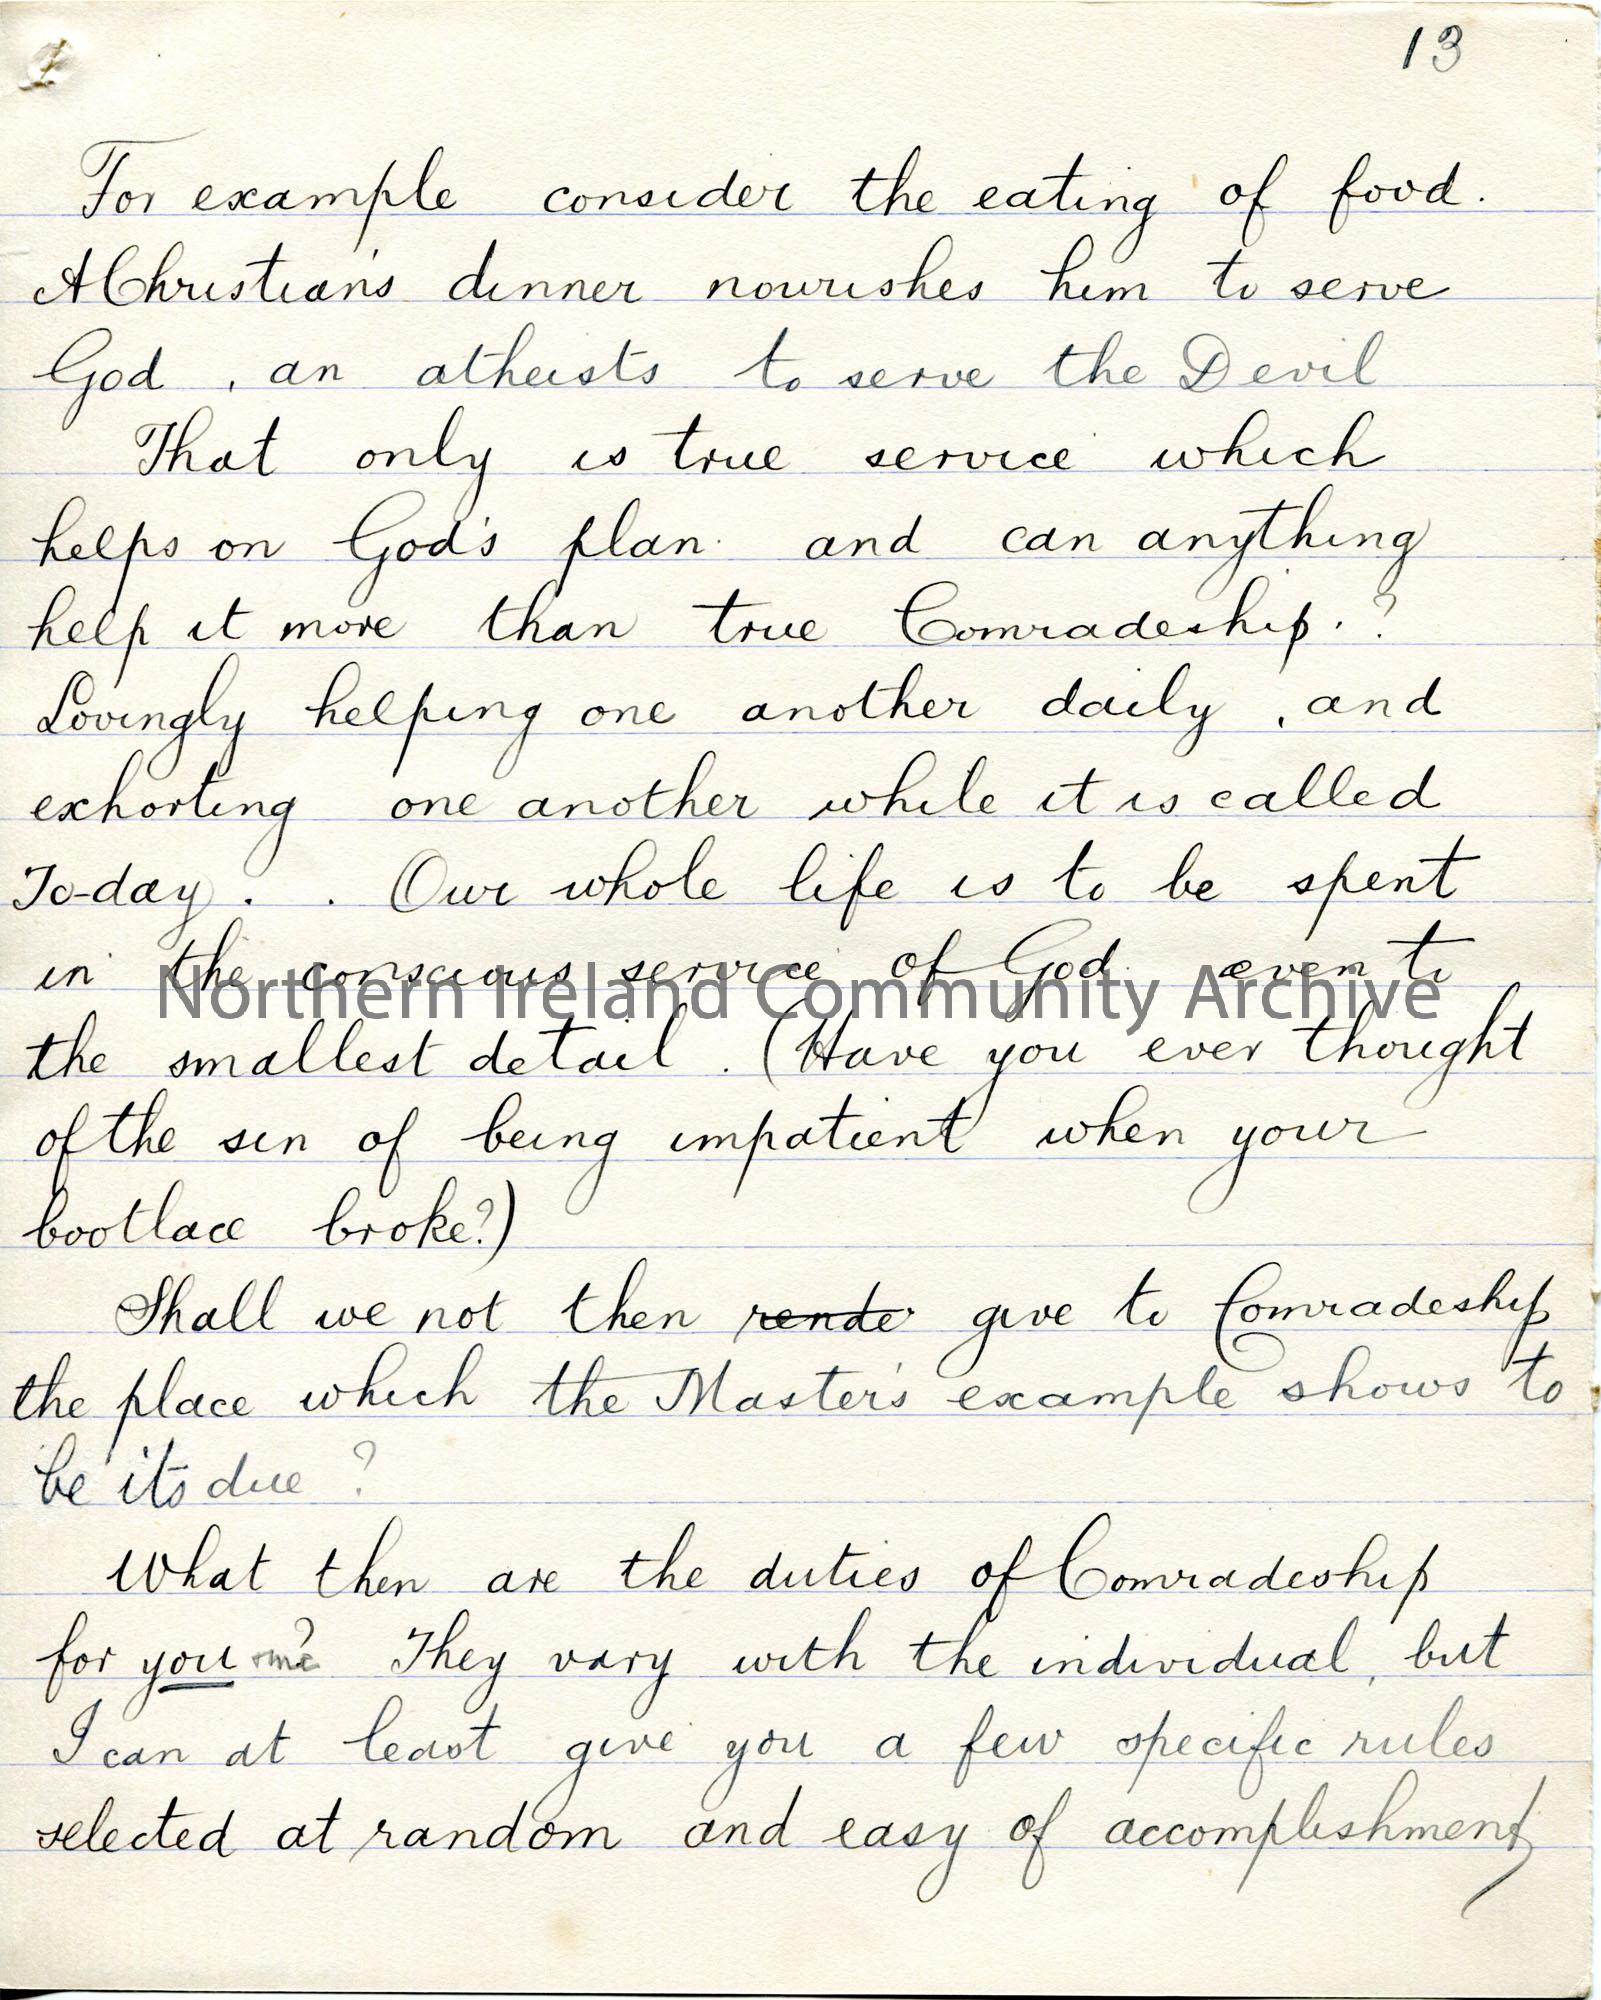 13
For example consider the eating of food.
A Christian's dinner nourishes him to serve
God, an atheists to serve the Devil
That only is true service which
helps on God's plan and can anything
help it more than true Comradeship.?
Lovingly helping one another daily, and
exhorting one another while it is called
To-day. . Our whole life is to be spent
in the conscious service of God even to
Northern Ireland Community Archive
the smallest detail. (Have you ever thought
of the sin of being impatient when your
bootlace broke?)
Shall we not then rende give to Comradeship
the place which the Master's example shows to
be its due?
What then are the duties of Comradeship
for you ? They vary with the individual, but
I can at least give you a few specific rules
selected at random and easy of accomplishment